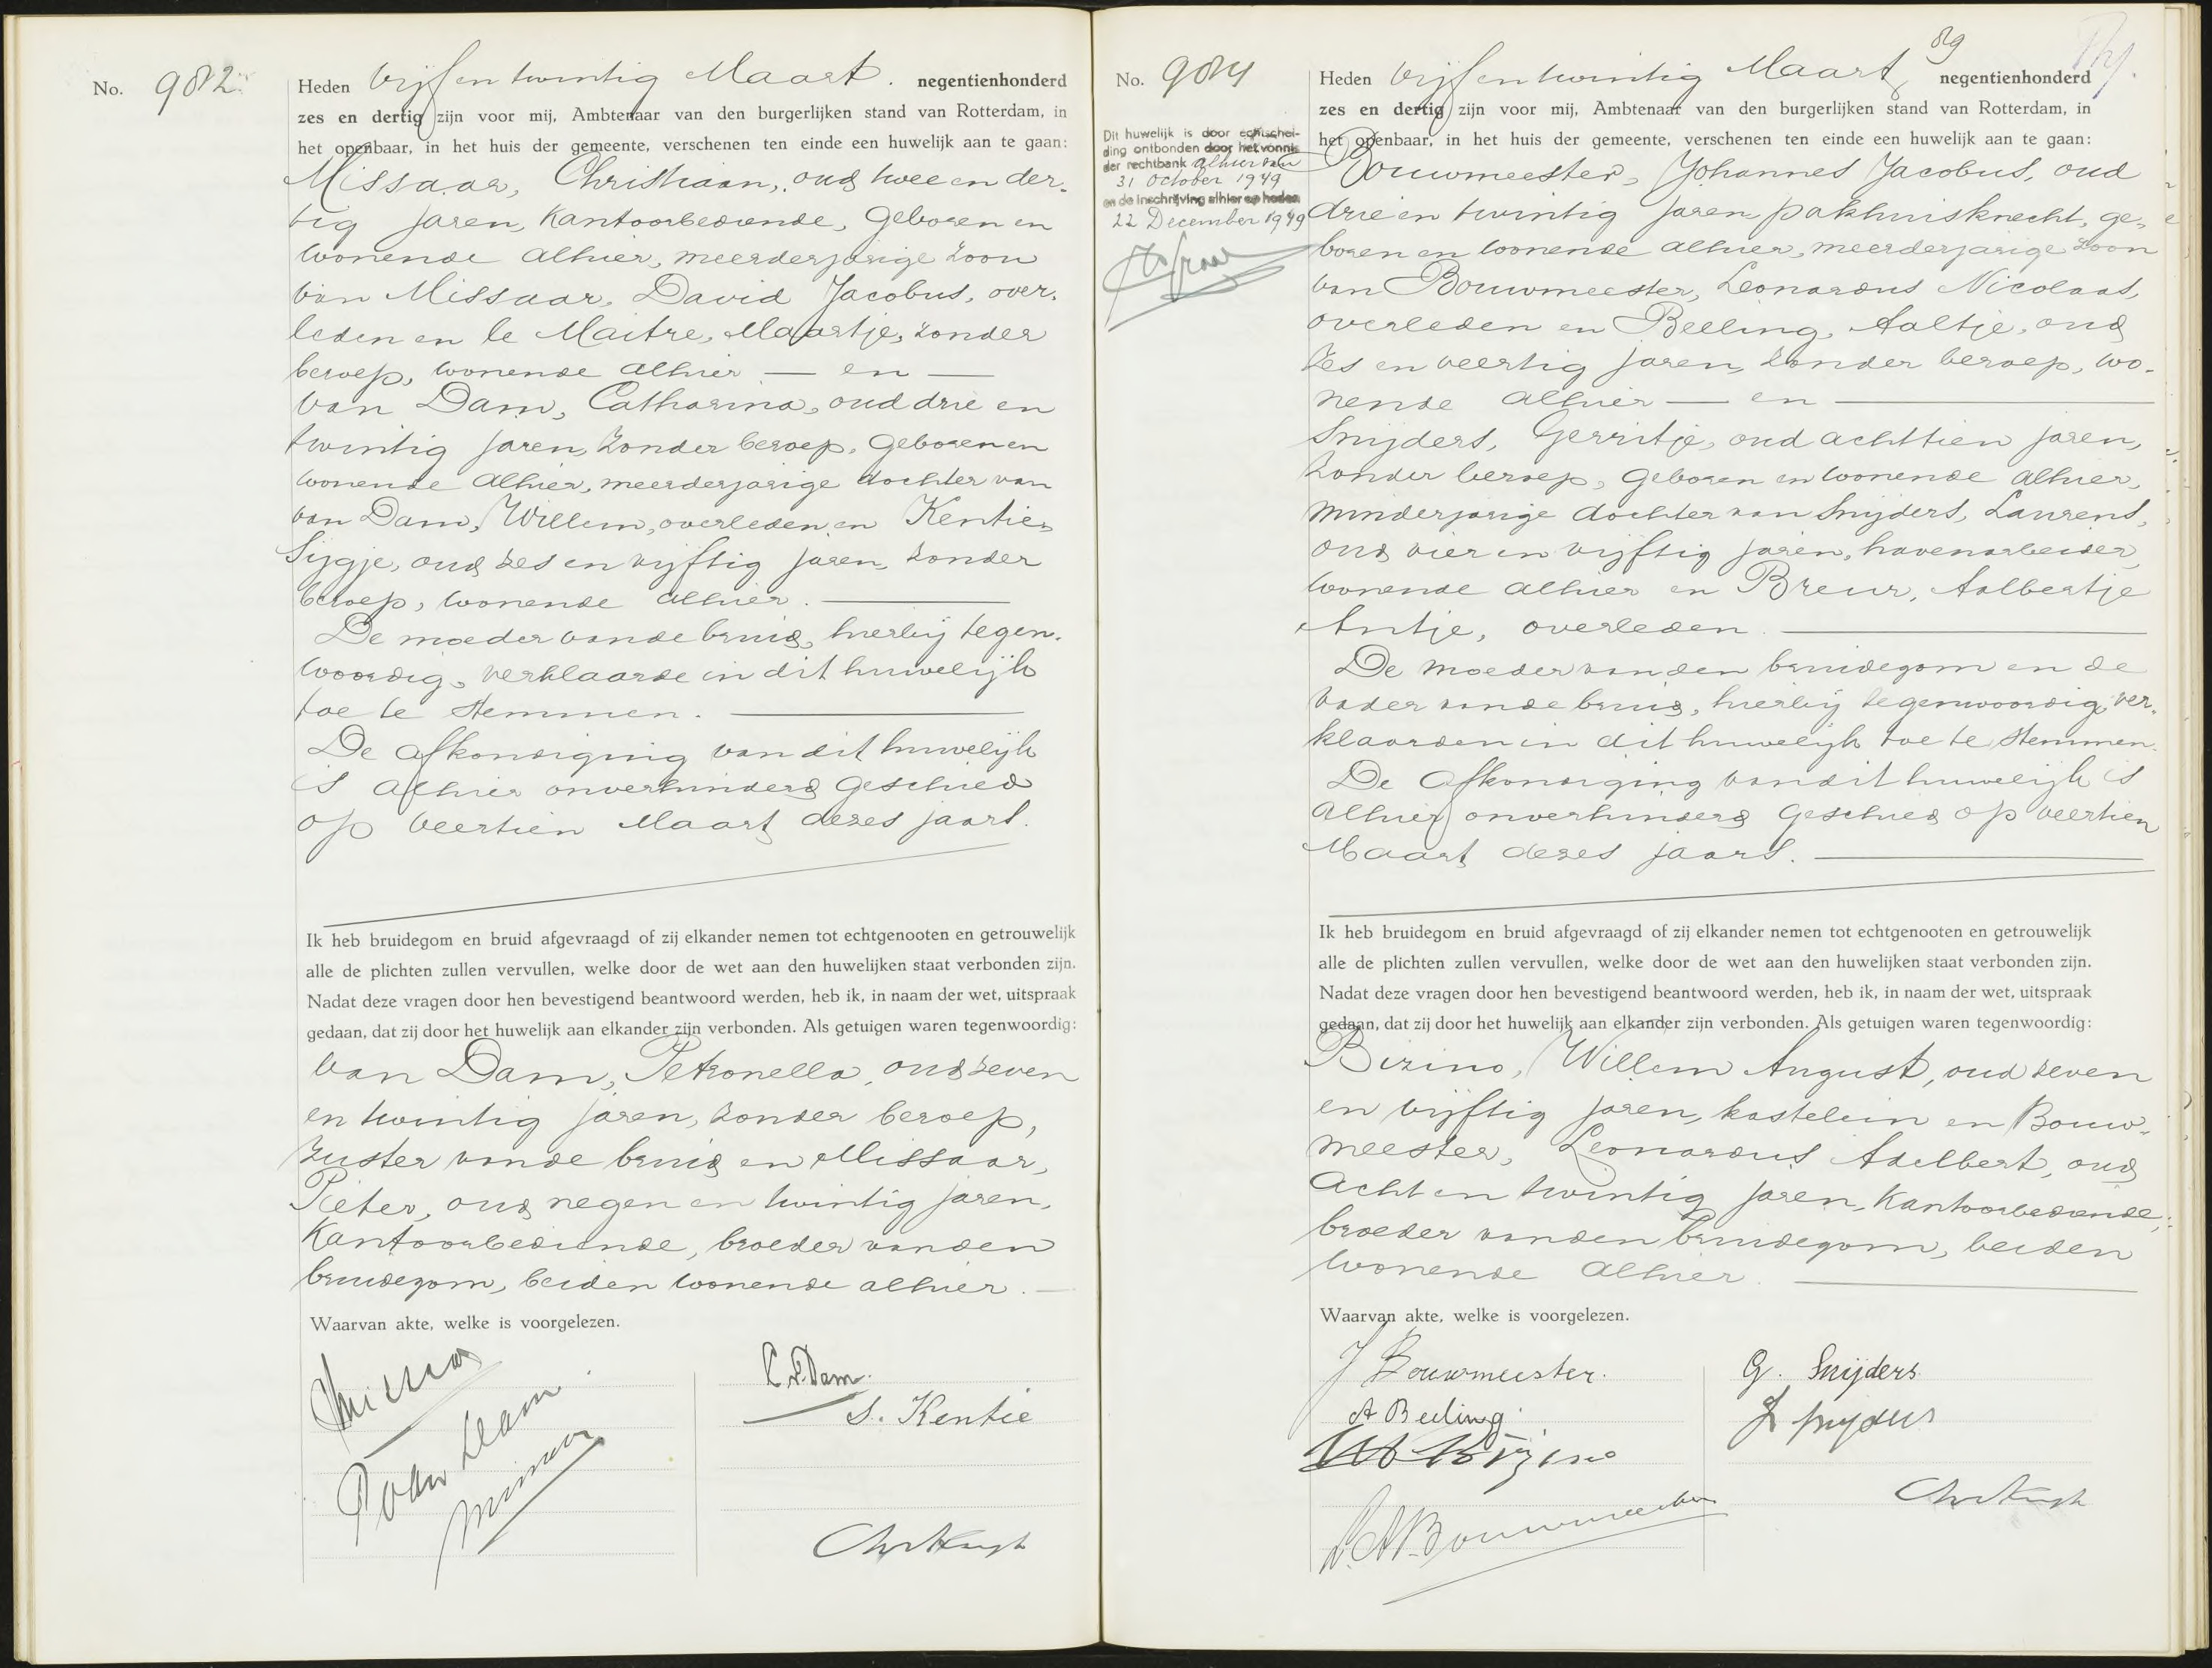 No. 982.
Heden vijf en twintig Maart. negentienhonderd
zes en dertig zijn voor mij, Ambtenaar van den burgerlijken stand van Rotterdam, in
het openbaar, in het huis der gemeente, verschenen ten einde een huwelijk aan te gaan:
Missaar, Christiaan, oud twee en der-
tig jaren, kantoorbediende, geboren en
wonende alhier, meerderjarige zoon
van Missaar, David Jacobus, over-
leden en le Maitre, Maartje, zonder
beroep, wonende alhier — en —
van Dam, Catharina, oud drie en
twintig jaren, zonder beroep, geboren en
wonende alhier, meerderjarige dochter van
van Dam, Willem, overleden en Kentie,
Sijgje, oud zes en vijftig jaren, zonder
beroep, wonende alhier. —
De moeder van de bruid, hierbij tegen-
woordig, verklaarde in dit huwelijk
toe te stemmen. —
De afkondiging van dit huwelijk
is alhier onverhinderd geschied
op veertien Maart dezes jaars.
Ik heb bruidegom en bruid afgevraagd of zij elkander nemen tot echtgenooten en getrouwelijk
alle de plichten zullen vervullen, welke door de wet aan den huwelijken staat verbonden zijn.
Nadat deze vragen door hen bevestigend beantwoord werden, heb ik, in naam der wet, uitspraak
gedaan, dat zij door het huwelijk aan elkander zijn verbonden. Als getuigen waren tegenwoordig:
van Dam, Petronella, oud zeven
en twintig jaren, zonder beroep,
zuster van de bruid en Missaar,
Pieter, oud negen en twintig jaren,
kantoorbediende, broeder van den
bruidegom, beiden wonende alhier. —
Waarvan akte, welke is voorgelezen.
C v. Dam.
S. Kentie
P van Dam
No. 984
89
Heden vijf en twintig Maart negentienhonderd
zes en dertig zijn voor mij, Ambtenaar van den burgerlijken stand van Rotterdam, in
het openbaar, in het huis der gemeente, verschenen ten einde een huwelijk aan te gaan:
Dit huwelijk is door echtschei-
ding ontbonden door het vonnis
der rechtbank alhier van
31 October 1949
en de inschrijving alhier op heden
22 December 1949
Bouwmeester, Johannes Jacobus, oud
drie en twintig jaren, pakhuisknecht, ge-
boren en wonende alhier, meerderjarige zoon
van Bouwmeester, Leonardus Nicolaas,
overleden en Beeling, Aaltje, oud
zes en veertig jaren, zonder beroep, wo-
nende alhier — en —
Snijders, Gerritje, oud achttien jaren,
zonder beroep, geboren en wonende alhier,
minderjarige dochter van Snijders, Laurens,
oud vier en vijftig jaren, havenarbeider,
wonende alhier en Breur, Aalbertje
Antje, overleden. —
De moeder van den bruidegom en de
vader van de bruid, hierbij tegenwoordig, ver-
klaarden in dit huwelijk toe te stemmen.
De afkondiging van dit huwelijk is
alhier onverhinderd geschied op veertien
Maart dezes jaars. —
Ik heb bruidegom en bruid afgevraagd of zij elkander nemen tot echtgenooten en getrouwelijk
alle de plichten zullen vervullen, welke door de wet aan den huwelijken staat verbonden zijn.
Nadat deze vragen door hen bevestigend beantwoord werden, heb ik, in naam der wet, uitspraak
gedaan, dat zij door het huwelijk aan elkander zijn verbonden. Als getuigen waren tegenwoordig:
Bizino, Willem August, oud zeven
en vijftig jaren, kastelein en Bouw-
meester, Leonardus Adelbert, oud
acht en twintig jaren, kantoorbediende,
broeder van den bruidegom, beiden
wonende alhier. —
Waarvan akte, welke is voorgelezen.
J Bouwmeester.
G. Snijders
A Beeling.
L Snijders
L.A. Bouwmeester